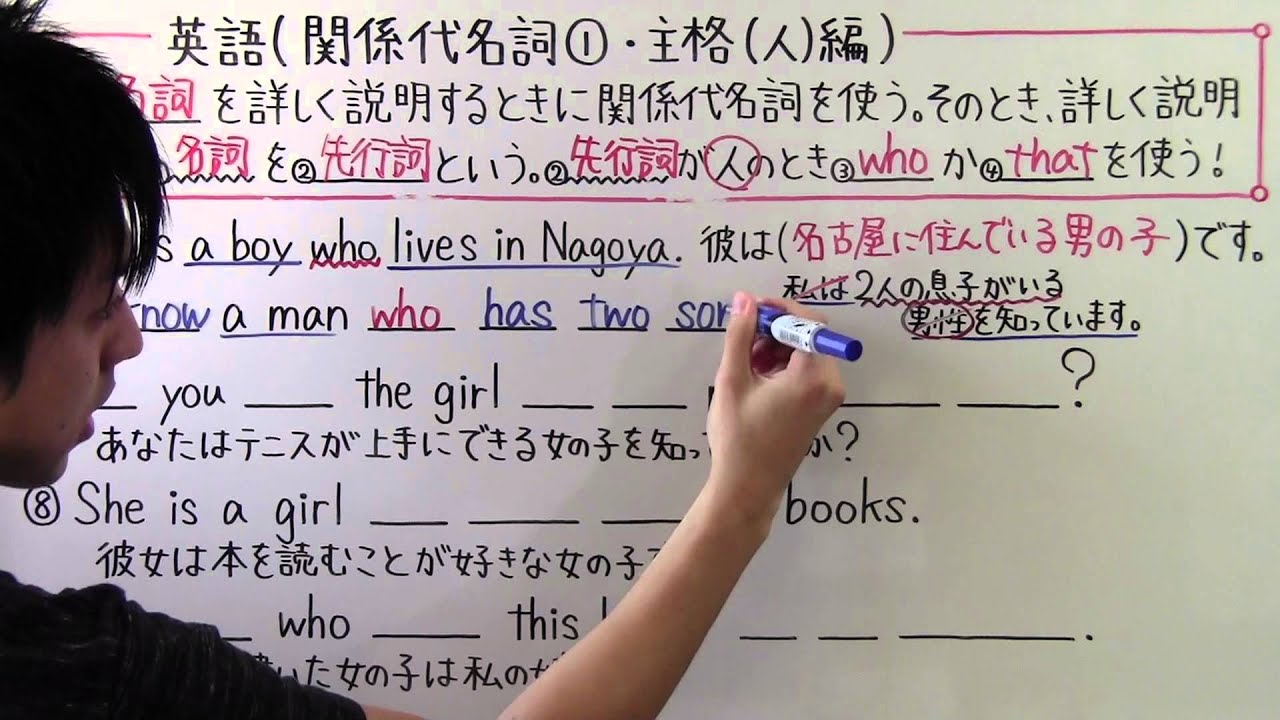 英語(関係代名詞①・主格(人)編)
名詞を詳しく説明するときに関係代名詞を使う。そのとき、詳しく説明
名詞を②先行詞という。②先行詞が人のとき③whoか④thatを使う!
s a boy who lives in Nagoya. 彼は(名古屋に住んでいる男の子)です。
私は2人の息子がいる
now a man who has two son
男性を知っています。
__ you __ the girl __ __ __ __ ?
あなたはテニスが上手にできる女の子を知っ か?
⑧ She is a girl __ __ __ books.
彼女は本を読むことが好きな女の子
__ who __ this __ __ __.
いた女の子は私の